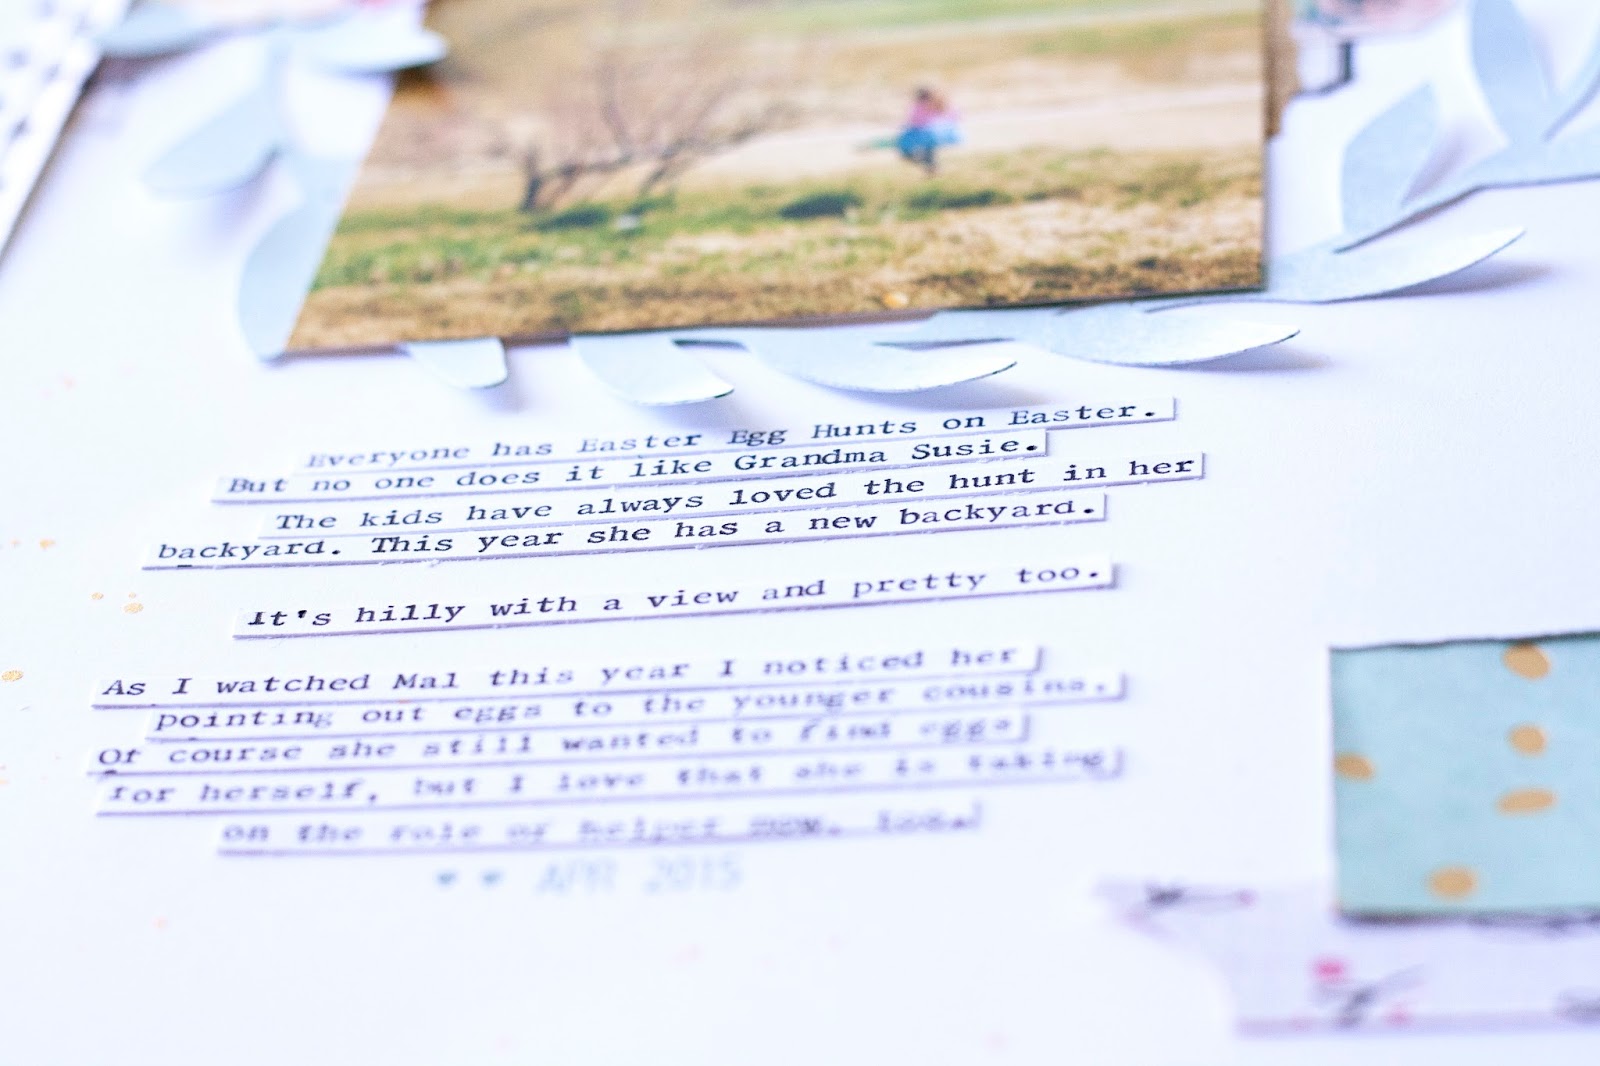 Everyone has Easter Egg Hunts on Easter.
But no one does it like Grandma Susie.
The kids have always loved the hunt in her
backyard. This year she has a new backyard.
It's hilly with a view and pretty too.
As I watched Mal this year I noticed her
pointing out eggs to the younger cousins.
Of course she still wanted to find eggs
for herself, but I love that she is taking
on the role of helper now, too.
APR 2015